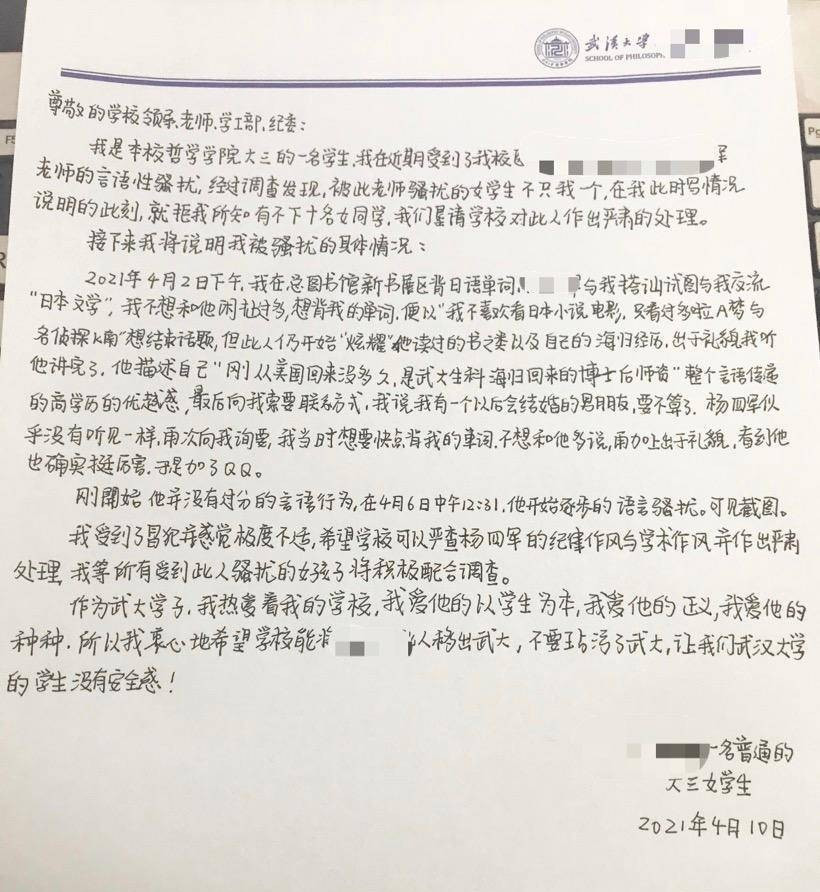 武汉大学
SCHOOL OF PHILOSOPHY
尊敬的学校领导.老师.学工部.纪委:
我是本校哲学学院大三的一名学生.我在近期受到了我校
老师的言语性骚扰,经过调查发现,被此老师骚扰的女学生不只我一个,在我此时写情况
说明的此刻,就拒我所知有不下十名女同学,我们恳请学校对此人作出严肃的处理。
接下来我将说明我被骚扰的具体情况:
2021年4月2日下午,我在总图书馆新书展区背日语单词,与我搭讪试图与我交流
“日本文学”,我不想和他闲扯过多,想背我的单词,便以“我不喜欢看日本小说电影,只看过多啦A梦与
名侦探柯南”想结束话题,但此人仍开始“炫耀”他读过的书之类以及自己的海归经历,出于礼貌我听
他讲完了,他描述自己“刚从美国回来没多久,是武大生科海归回来的博士后师资”整个言语传递
的高学历的优越感,最后向我索要联系方式,我说我有一个以后会结婚的男朋友,要不算了.杨四军似
乎没有听见一样,再次向我询要,我当时想要快点背我的单词.不想和他多说,再加上出于礼貌,看到他
也确实挺厉害.于是加了QQ。
刚開始他并没有过分的言语行为,在4月6日中午12:31,他开始逐步的语言骚扰。可见截图。
我受到了冒犯并感觉极度不适,希望学校可以严查杨四军的纪律作风与学术作风并作出严肃
处理,我等所有受到此人骚扰的女孩子将积极配合调查。
作为武大学子,我热爱着我的学校,我爱他的以学生为本,我爱他的正义,我爱他的
种种.所以我衷心地希望学校能将人移出武大,不要玷污了武大,让我们武汉大学
的学生没有安全感!
一名普通的
大三女学生
2021年4月10日